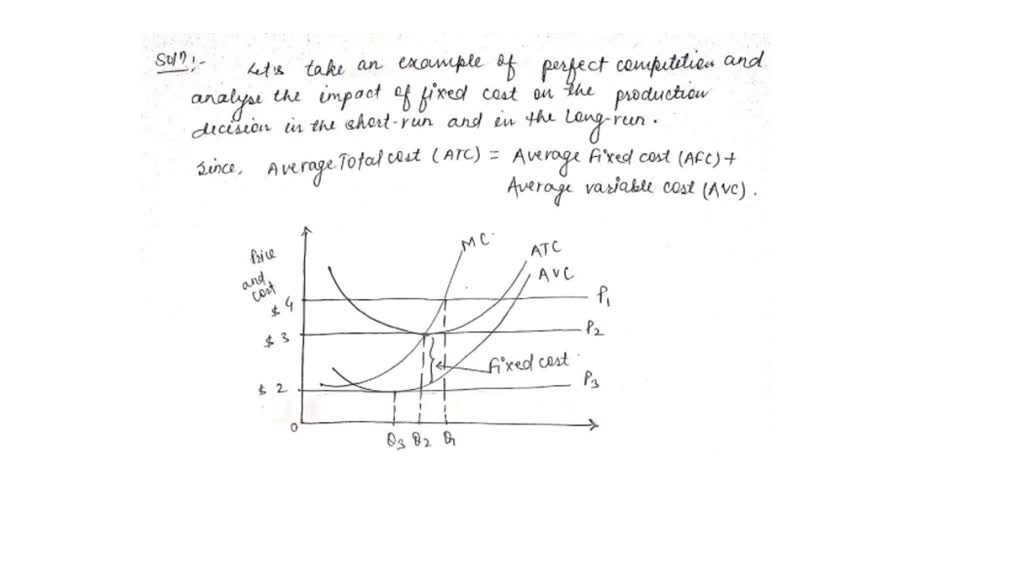 Sol^n:- Let's take an example of perfect competition and
analyse the impact of fixed cost on the production
decision in the short-run and in the long-run.
Since, Average Total cost (ATC) = Average Fixed cost (AFC) +
Average variable cost (AVC).
MC
ATC
AVC
Price
and
cost
$ 4
P1
$ 3
P2
Fixed cost
$ 2
P3
0
Q3 Q2 Q1